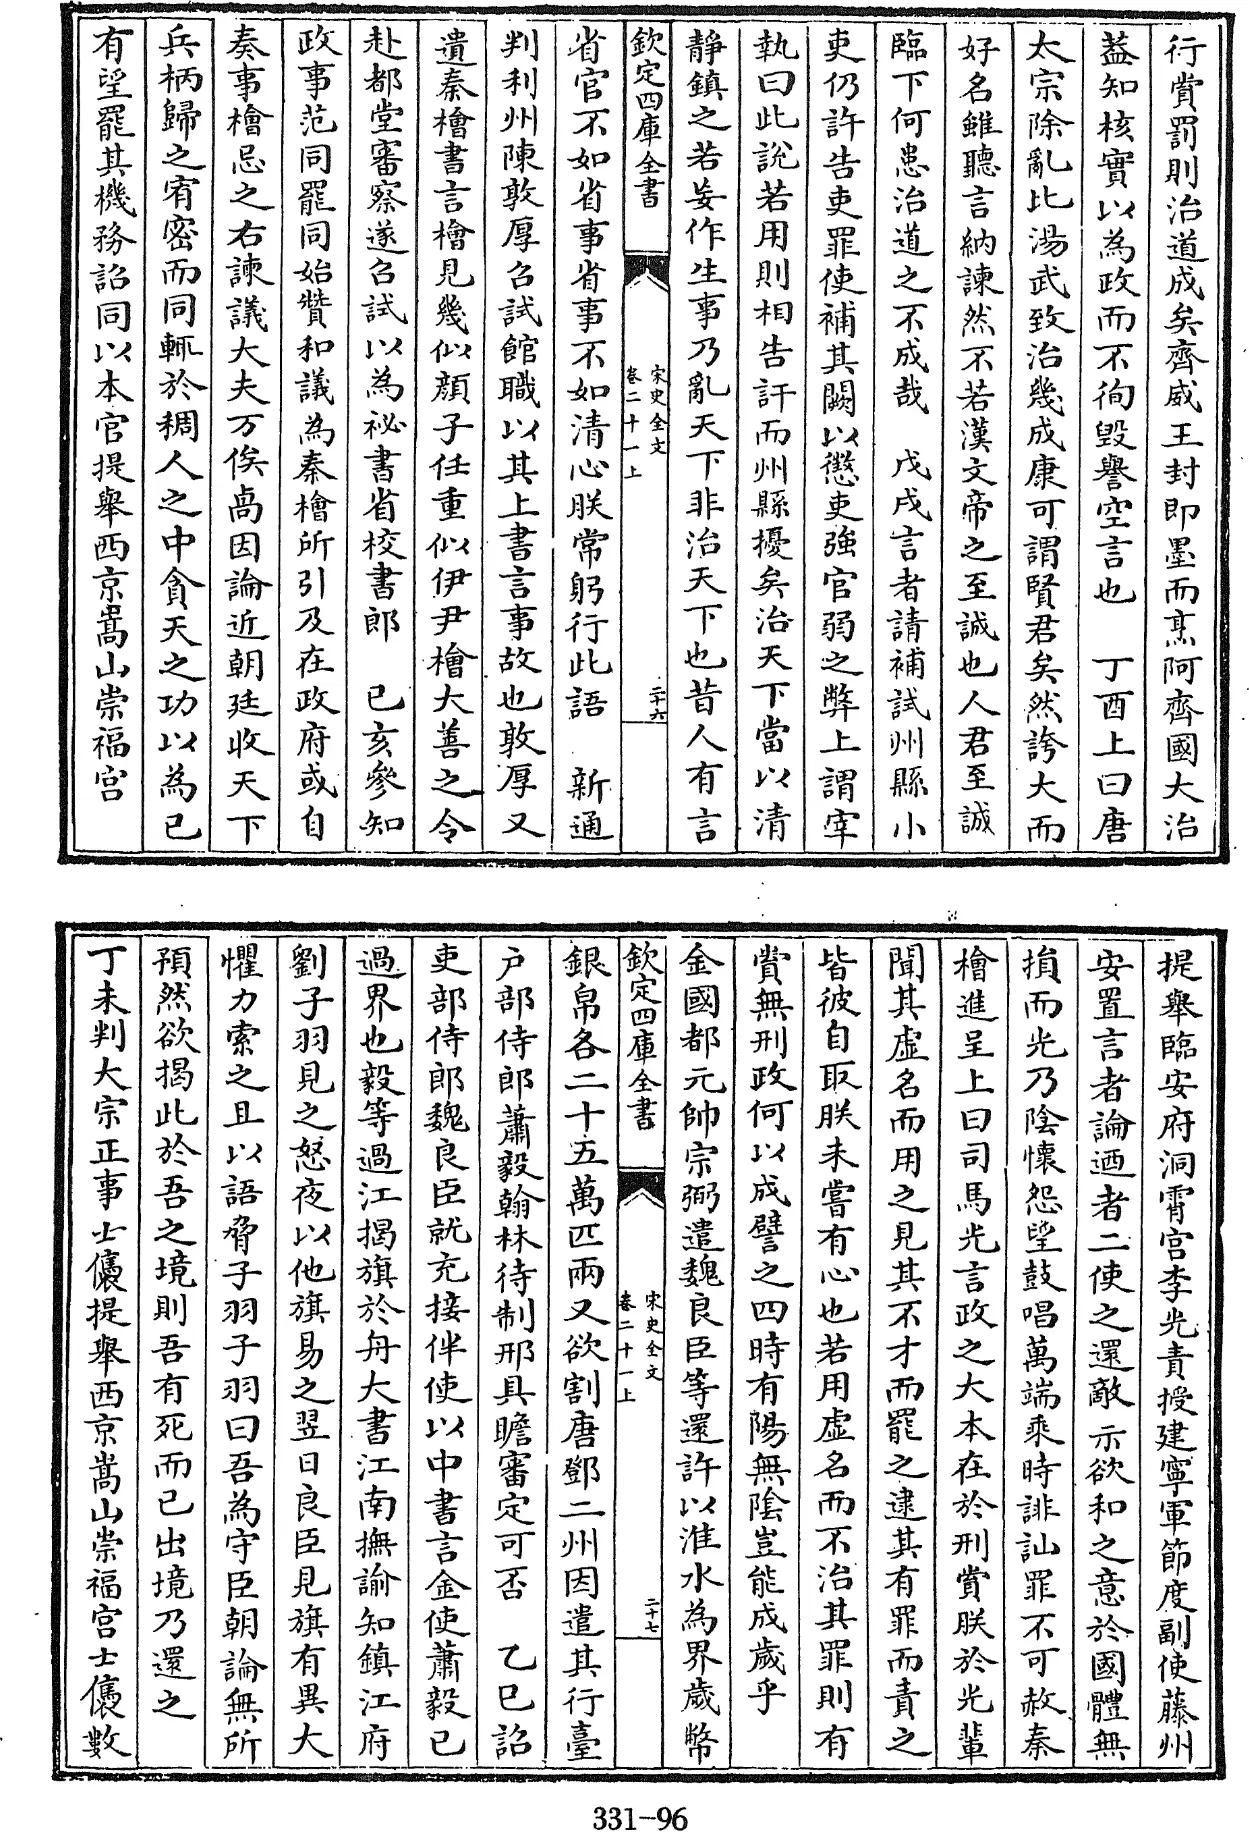 行賞罰則治道成矣齊威王封即墨而烹阿齊國大治
葢知核實以為政而不徇毀譽空言也　丁酉上曰唐
太宗除亂比湯武致治幾成康可謂賢君矣然誇大而
好名雖聽言納諫然不若漢文帝之至誠也人君至誠
臨下何患治道之不成哉　戊戌言者請補試州縣小
吏仍許告吏罪使補其闕以懲吏強官弱之弊上謂宰
執曰此說若用則相告訐而州縣擾矣治天下當以清
靜鎮之若妄作生事乃亂天下非治天下也昔人有言
欽定四庫全書
宋史全文
卷二十一上
二十六
省官不如省事省事不如清心朕常躬行此語　新通
判利州陳敦厚召試館職以其上書言事故也敦厚又
遺秦檜書言檜見幾似顔子任重似伊尹檜大善之令
赴都堂審察遂召試以為祕書省校書郎　已亥參知
政事范同罷同始贊和議為秦檜所引及在政府或自
奏事檜忌之右諫議大夫万俟卨因論近朝廷收天下
兵柄歸之宥密而同輒於稠人之中貪天之功以為已
有望罷其機務詔同以本官提舉西京嵩山崇福宫
提舉臨安府洞霄宫李光責授建寧軍節度副使藤州
安置言者論迺者二使之還敵示欲和之意於國體無
損而光乃陰懷怨望鼓唱萬端乘時誹訕罪不可赦秦
檜進呈上曰司馬光言政之大本在於刑賞朕於光輩
聞其虛名而用之見其不才而罷之逮其有罪而責之
皆彼自取朕未嘗有心也若用虛名而不治其罪則有
賞無刑政何以成譬之四時有陽無陰豈能成歲乎
金國都元帥宗弼遣魏良臣等還許以淮水為界歲幣
欽定四庫全書
宋史全文
卷二十一上
二十七
銀帛各二十五萬匹兩又欲割唐鄧二州因遣其行臺
户部侍郎蕭毅翰林待制邢具瞻審定可否　乙巳詔
吏部侍郎魏良臣就充接伴使以中書言金使蕭毅已
過界也毅等過江揭旗於舟大書江南撫諭知鎮江府
劉子羽見之怒夜以他旗易之翌日良臣見旗有異大
懼力索之且以語脅子羽子羽曰吾為守臣朝論無所
預然欲揭此於吾之境則吾有死而已出境乃還之
丁未判大宗正事士㒟提舉西京嵩山崇福宫士㒟數
331-96